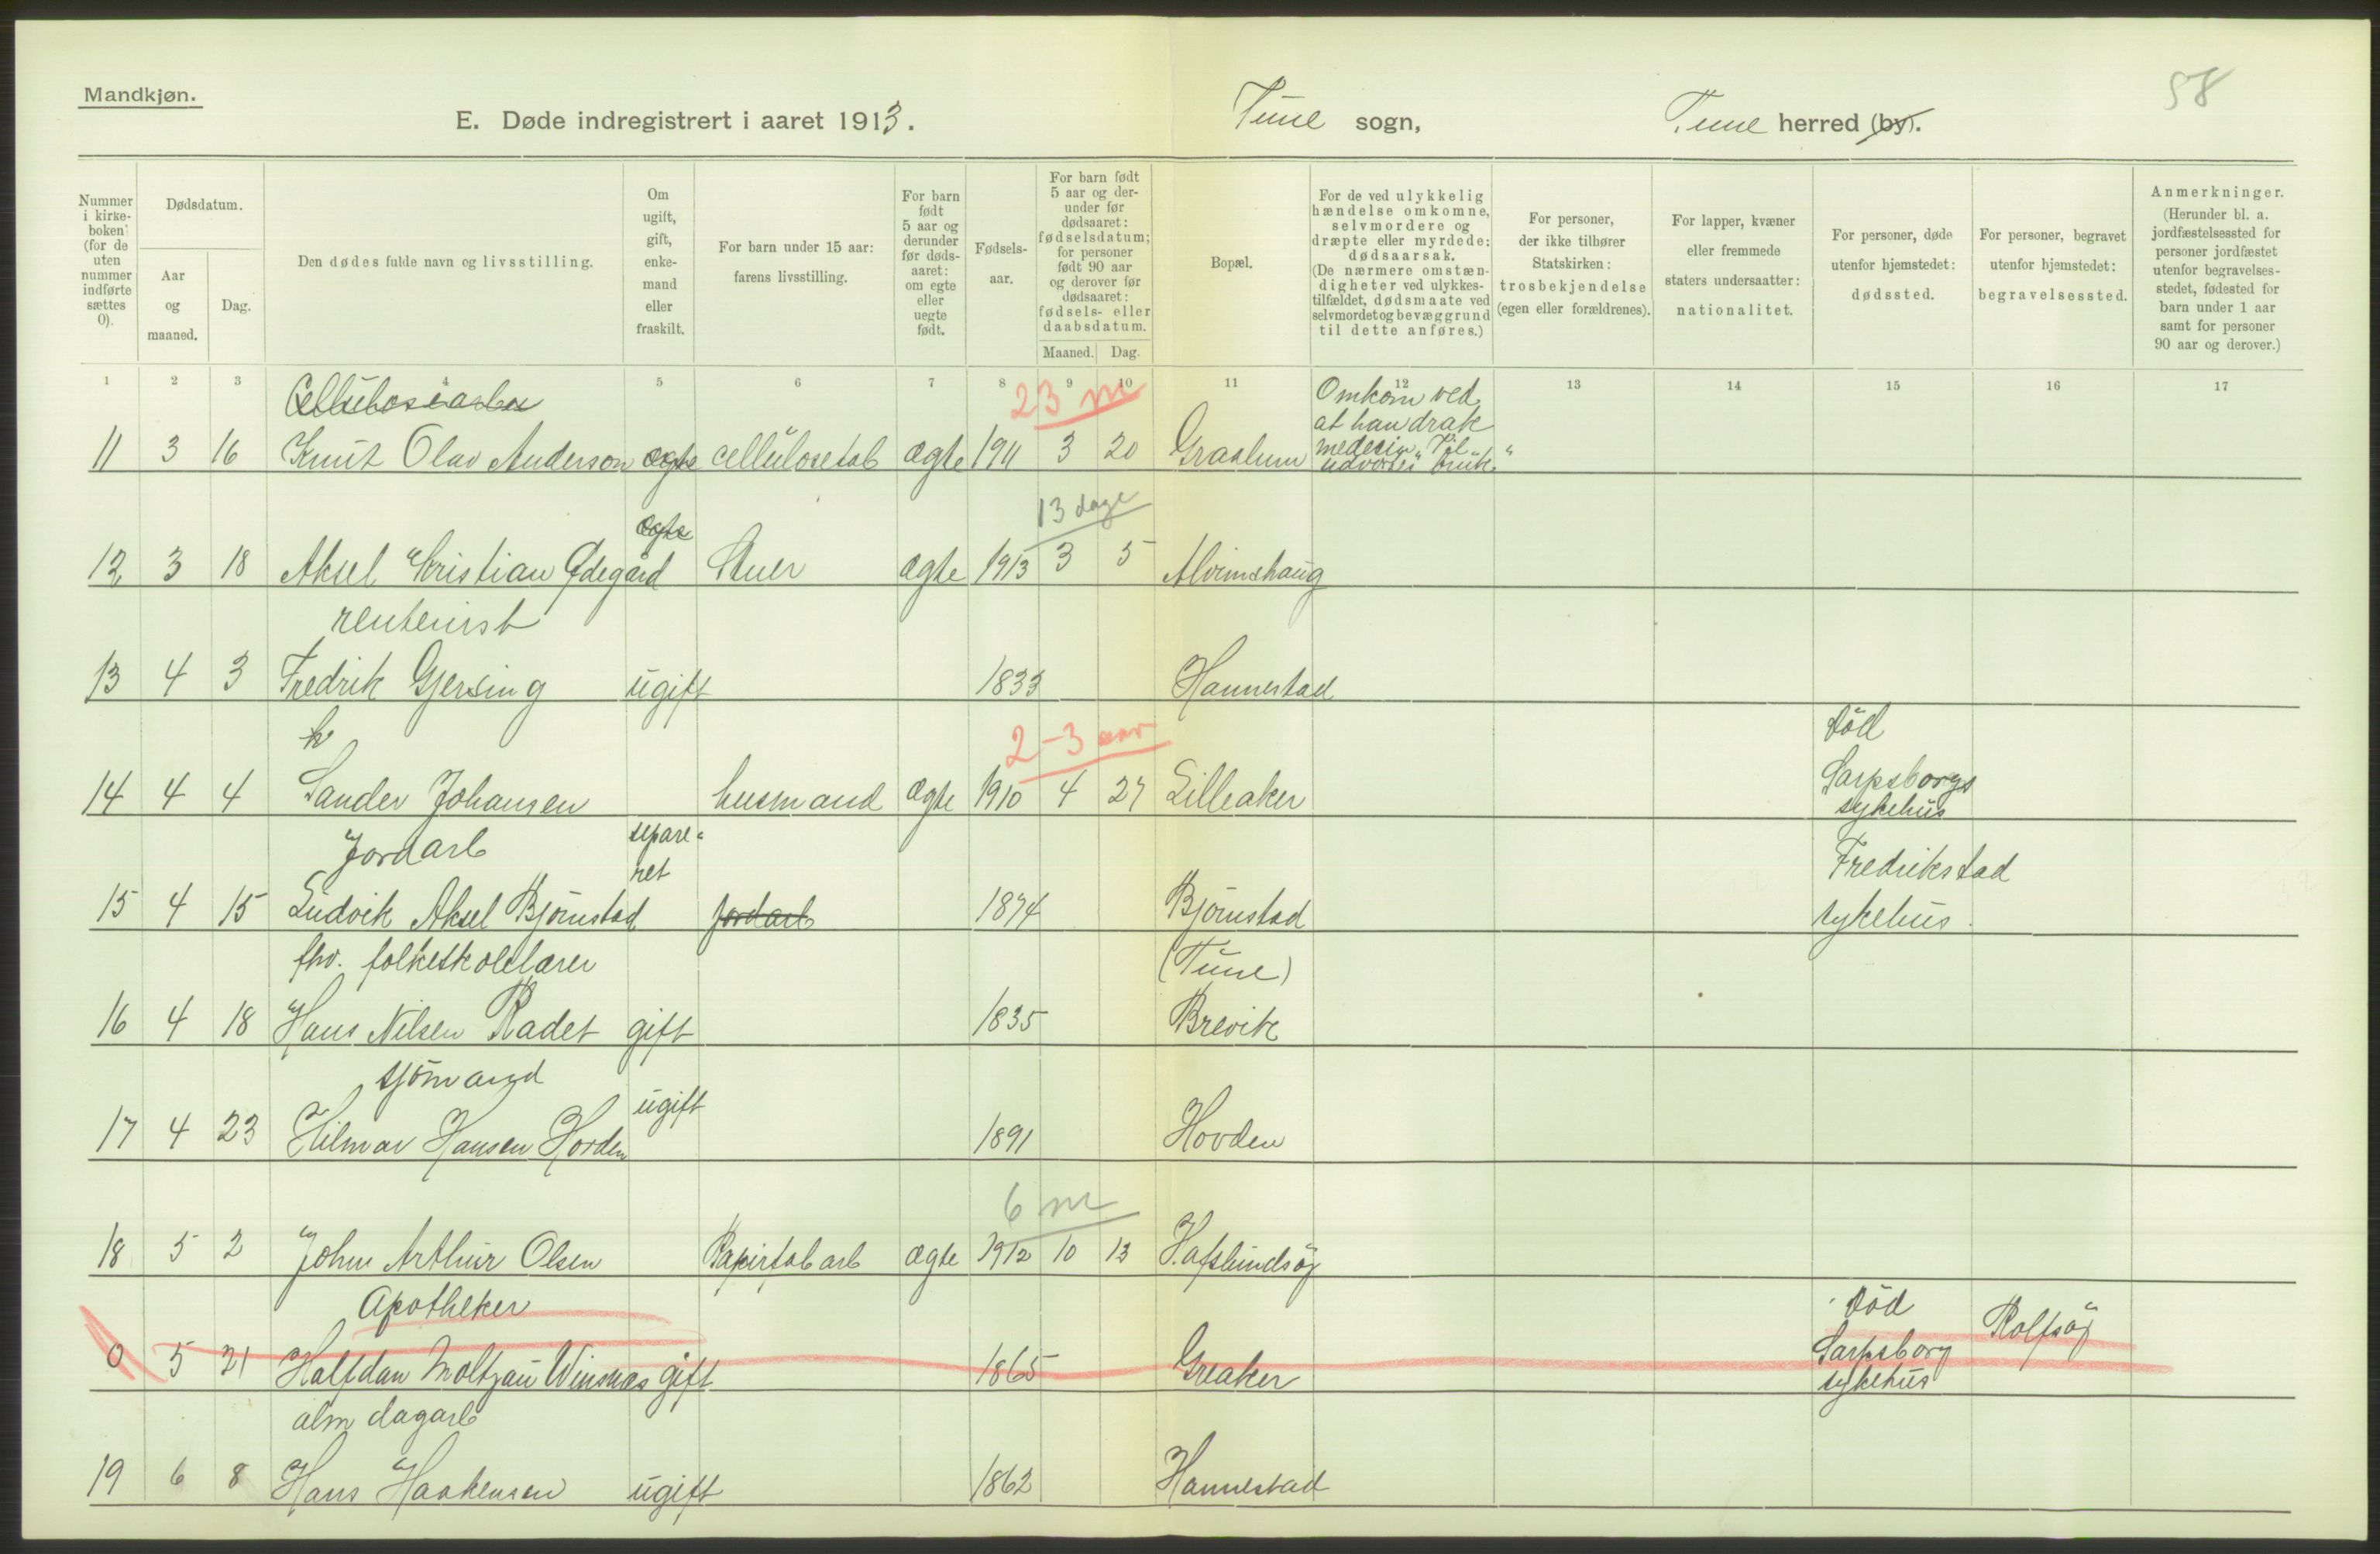 58
Mandkjøn.
E. Døde indregistrert i aaret 1913. Tune sogn, Tune herred (by).
Nummer i kirke- boken (for de uten nummer indførte sættes 0).
Dødsdatum.
Aar og maaned.
Dag.
Den dødes fulde navn og livsstilling.
Om ugift, gift, enke- mand eller fraskilt.
For barn under 15 aar: farens livsstilling.
For barn født 5 aar og derunder før døds- aaret: om egte eller uegte født.
Fødsels- aar.
For barn født 5 aar og der- under før dødsaaret: fødselsdatum; for personer født 90 aar og derover før dødsaaret: fødsels- eller daabsdatum.
Maaned. Dag.
Bopæl.
For de ved ulykkelig hændelse omkomne, selvmordere og dræpte eller myrdede: dødsaarsak. (De nærmere omstæn- digheter ved ulykkes- tilfældet, dødsmaate ved selvmordet og bevæggrund til dette anføres.)
For personer, der ikke tilhører Statskirken: trosbekjendelse (egen eller forældrenes).
For lapper, kvæner eller fremmede staters undersaatter: nationalitet.
For personer, døde utenfor hjemstedet: dødssted.
For personer, begravet utenfor hjemstedet: begravelsessted.
Anmerkninger. (Herunder bl. a. jordfæstelsessted for personer jordfæstet utenfor begravelses- stedet, fødested for barn under 1 aar samt for personer 90 aar og derover.)
1 2 3 4 5 6 7 8 9 10 11 12 13 14 15 16 17
Cellulosearb 23 m Omkom ved
at han drak
11 3 16 Knut Olav Anderson ægte cellulosefab ægte 1911 3 20 Graalum medecin „Til
udvortes bruk."
ægte 13 dage
12 3 18 Aksel Kristian Ødegård Stuer ægte 1913 3 5 Alvimshaug
rentenist
13 4 3 Fredrik Gjersing ugift 1833 Hannestad
h 2-3 aar Död
14 4 4 Sander Johansen husmand ægte 1910 4 27 Lilleaker Sarpsborgs
sykehus
Jordarb separe- Fredrikstad
ret
15 4 15 Ludvik Aksel Bjørnstad jordarb 1874 Bjørnstad sykehus.
fhv. folkeskolelærer (Tune)
16 4 18 Hans Nilsen Radet gift 1835 Brevik
sjömand ugift
17 4 23 Hilmar Hansen Hovden 1891 Hovden
6 m
18 5 2 John Arthur Olsen Papirfabarb ægte 1912 10 13 Hafslundsöj
Apotheker Död Rolfsöj
0 5 21 Halfdan Moltzau Winsnæs gift 1865 Greaker Sarpsborg
sykehus
alm dagarb
19 6 8 Hans Haakensen ugift 1862 Hannestad